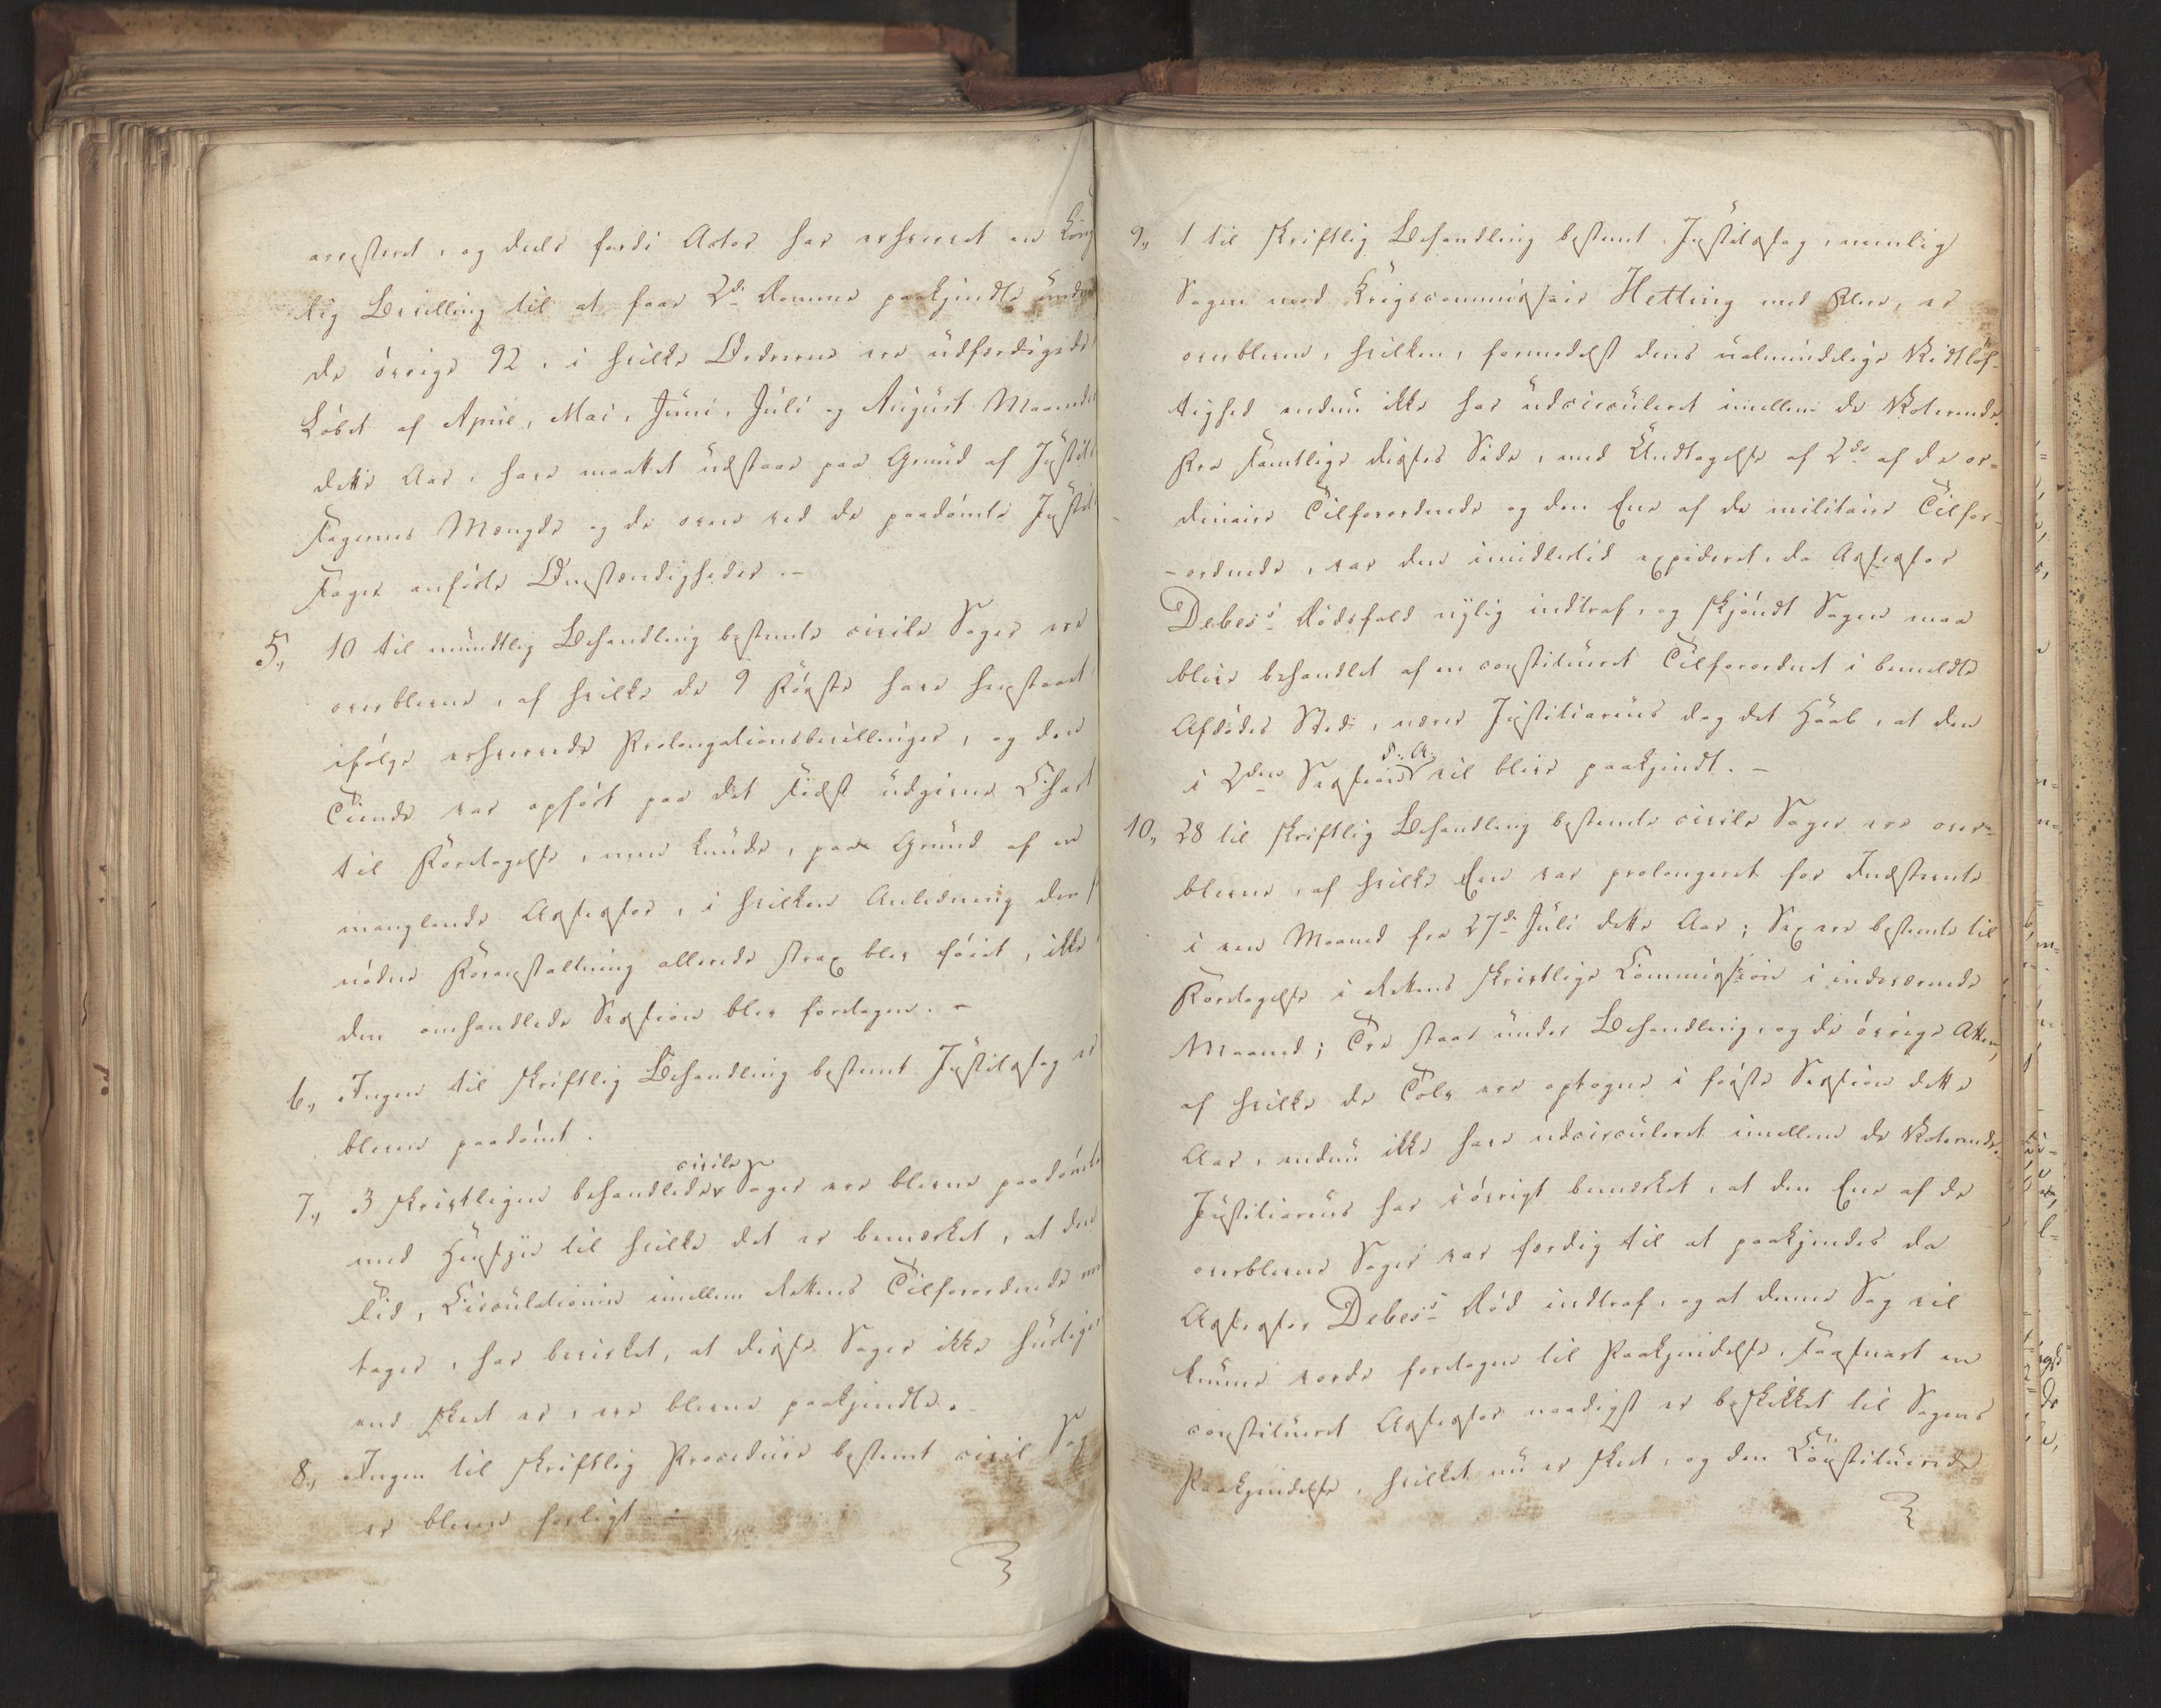 arresteret, og deels fordi Actor har erhvervet en Kong
lig Bevilling til at faae 2de Domme paakjendte under
de övrige 92, i hvilke Ordrerne ere udfærdigede
Löbet af April, Mai, Juni, Juli og August Maaneder
dette Aar, have maattet udstaae paa Grund af Justits
sagernes Mængde og de oven ved de paadömte Justits
sager anförte Omstændigheder. –
5., 10 til mundtlig Behandling bestemte civile Sager ere
overblevne, af hvilke de 9 Förste have henstaaet
ifölge erhvervede Prolongationsbevillinger, og den
Tiende var opfört paa det sidst udgivne Chart
til Foretagelse, men kunde, paa Grund af en
manglende Assessor, i hvilken Anledning den for
nödne Foranstaltning allerede strax blev föiet, ikke
den omhandlede Session blev foretagen. –
6., Ingen til skriftlig Behandling bestemt Justitssag er
bleven paadömt.
7., 3 skriftligen behandlede civile Sager ere blevne paadömte
med Hensyn til hvilke det er bemærket, at den
Tid, Circulationen imellem Rettens Tilforordnede med
tager, har bevirket, at disse Sager ikke hurtiger
end skeet er, ere blevne paakjendte. –
8., Ingen til skriftlig Procedure bestemt civil Sag
er bleven forligt –
9., 1 til skriftlig Behandling bestemt Justitssag, nemlig
Sagen mod Krigscommissair Hetting med Flere, er
overbleven, hvilken, formedelst dens ualmindelige Vidtlöf-
tighed endnu ikke har udcirculeret imellem de Voterende.
Fra samtlige Disses Side, med Undtagelse af 2de af de or-
dinaire Tilforordnede og den Ene af de militaire Tilfor-
-ordnede, var den imidlertid expederet, da Assessor
Debes's Dödsfald nylig indtraf, og skjöndt Sagen maa
blive behandlet af en constitueret Tilforordnet i bemeldte
Afdödes Sted, nærer Justitiarius dog det Haab, at den
i 2den Session d: A: vil blive paakjendt. –
10., 28 til skriftlig Behandling bestemte civile Sager ere over-
blevne, af hvilke Een var prolongeret for Indstevnte
i een Maaned fra 27de Juli dette Aar; Sex ere bestemte til
Foretagelse i Rettens skriftlige Commission i indeværende
Maaned; Tre staae under Behandling, og de övrige Atten,
af hvilke de Tolv ere optagne i förste Session dette
Aar, endnu ikke have udcirculeret imellem de Voterende.
Justitiarius har iövrigt bemærket, at den Ene af de
overblevne Sager var færdig til at paakjendes da
Assessor Debes's Död indtraf, og at denne Sag vil
kunne vorde foretagen til Paakjendelse, saasnart en
constitueret Assessor naadigst er beskikket til Sagens
Paakjendelse, hvilket nu er skeet, og den Constituerede